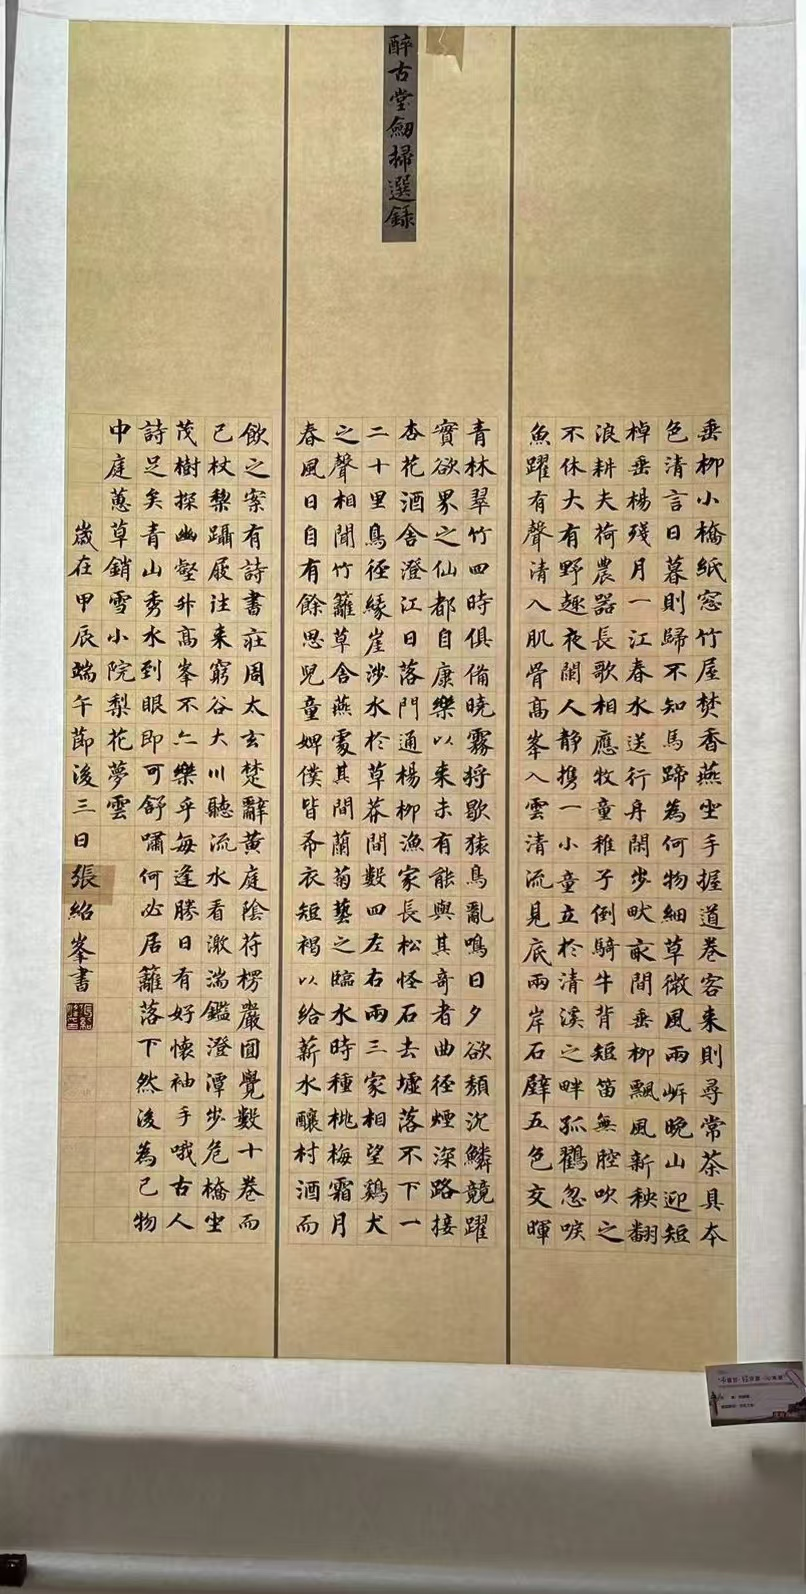 醉古堂劒掃選録
垂柳小橋紙窓竹屋焚香燕坐手握道卷客来則尋常茶具本
色清言日暮則歸不知馬蹄為何物細草微風兩岸晚山迎短
棹垂楊殘月一江春水送行舟閑步畎畝間垂柳飄風新秧翻
浪耕夫荷農器長歌相應牧童稚子倒騎牛背短笛無腔吹之
不休大有野趣夜闌人静携一小童立於清溪之畔孤鶴忽唳
魚躍有聲清入肌骨高峯入雲清流見底兩岸石壁五色交暉
青林翠竹四時俱備曉霧将歇猿鳥亂鳴日夕欲頽沉鱗競躍
實欲界之仙都自康樂以来未有能與其奇者曲径煙深路接
杏花酒舍澄江日落門通楊柳漁家長松怪石去墟落不下一
二十里鳥径緣崖涉水於草莽間數四左右兩三家相望鷄犬
之聲相聞竹籬草舍燕處其間蘭菊藝之臨水時種桃梅霜月
春風日自有餘思兒童婢僕皆布衣短褐以給薪水釀村酒而
飲之案有詩書莊周太玄楚辭黄庭陰符楞嚴圓覺數十卷而
己杖藜躡屐往来窮谷大川聽流水看激湍鑑澄潭步危橋坐
茂樹探幽壑升高峯不亦樂乎每逢勝日有好懷袖手哦古人
詩足矣青山秀水到眼即可舒嘯何必居籬落下然後為己物
中庭蕙草銷雪小院梨花夢雲
嵗在甲辰端午節後三日張紹峯書